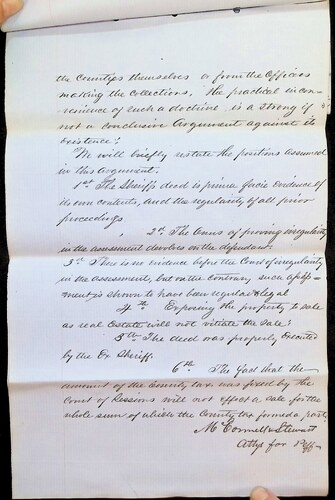 the Counties themselves or from the Officers
making the collections. The practical incon-
venience of such a doctrine is a strong if
not a conclusive argument against its
existence;
We will briefly restate the positions assumed
in this argument;
1st The Sheriffs deed is prima facie evidence of
its own contents, and the regularity of all prior
proceedings
2d The onus of proving irregularity
in the assessment devolves on the defendant.
3d There is no evidence before the Court of irregularity
in the assessment, but on the contrary such assess-
ment is shown to have been regular & legal
4th Exposing the property to sale
as real Estate will not vitiate the sale;
5th The deed was properly executed
by the Ex Sheriff.
6th The fact that the
amount of the County tax was fixed by the
Court of Sessions will not affect a sale for the
whole sum of which the County tax formed a part,
McConnell & Stewart
Attys for Plff